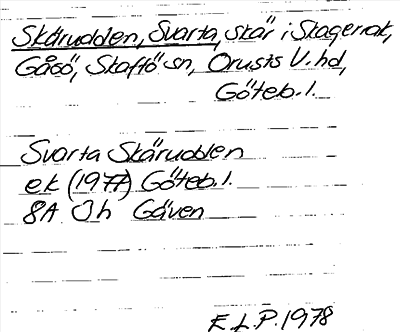 Skärudden, Svarta, skär i Skagerrak,
Gåsö, Skaftö sn, Orusts V. hd,
Göteb. l.
Svarta Skärudden
ek (1977) Göteb. l.
8A Oh Gåven
E. L. P. 1978